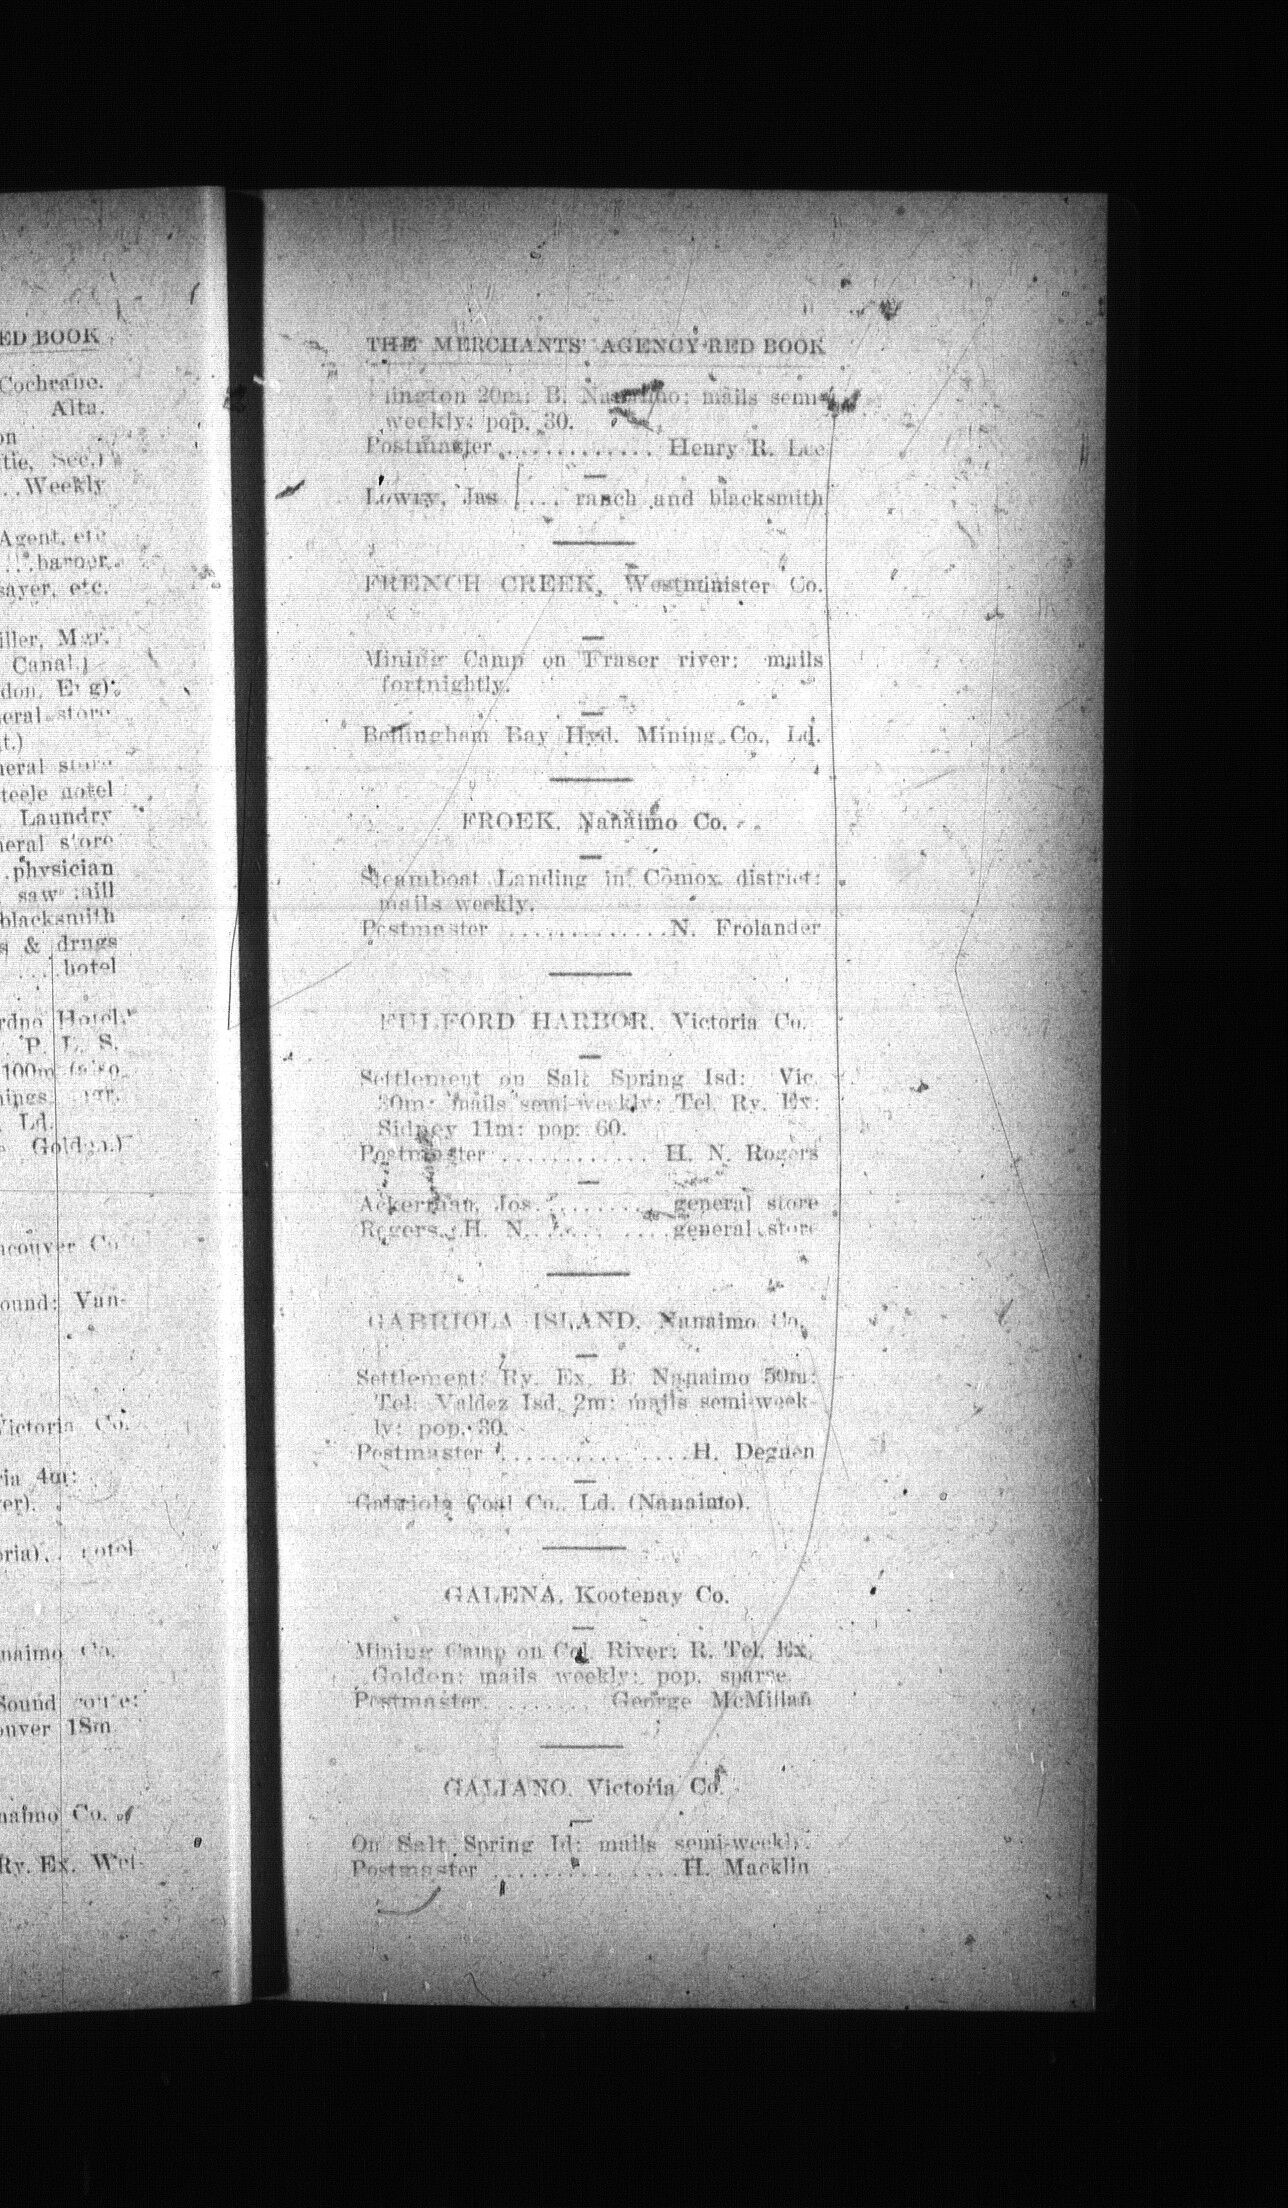 ED BOOK
Cochrane.
Alta.
on
tie, Sec.)
..Weekly
Agent, etc
...barber.
sayer, etc.
iller, Mgr.
Canal.)
don, Eng)
eral store
t.)
neral store
teele hotel
Laundry
neral store
.physician
saw mill
blacksmith
s & drugs
....hotel
rdno Hotel.
P. L. S.
100m (also
nings mgr.
Ld.
e Golden.)
ncouver Co
ound: Van-
Victoria Co.
ria 4m:
er).
oria).. hotel
naimo Co.
Sound route:
ouver 18m
naimo Co.
Ry. Ex. Wel-
THE MERCHANTS' AGENCY RED BOOK
lington 20m: B. Nanaimo: mails semi-
weekly: pop. 30.
Postmaster ............ Henry R. Lee
Lowry, Jas .... ranch and blacksmith
FRENCH CREEK, Westminister Co.
Mining Camp on Fraser river: mails
fortnightly.
Bellingham Bay Hyd. Mining Co., Ld.
FROEK, Nanaimo Co.
Steamboat Landing in Comox district:
mails weekly.
Postmaster .............N. Frolander
FULFORD HARBOR, Victoria Co.
Settlement on Salt Spring Isd: Vic
30m: mails semi-weekly: Tel. Ry. Ex:
Sidney 11m: pop: 60.
Postmaster ............ H. N. Rogers
Ackerman, Jos..........general store
Rogers, H. N...........general store
GABRIOLA ISLAND, Nanaimo Co.
Settlement: Ry. Ex. B. Nanaimo 50m:
Tel: Valdez Isd. 2m: mails semi-week-
ly: pop. 30.
Postmaster ...............H. Degnen
Gabriola Coal Co., Ld. (Nanaimo).
GALENA, Kootenay Co.
Mining Camp on Col. River: R. Tel. Ex.
Golden: mails weekly: pop. sparse.
Postmaster......... George McMillan
GALIANO, Victoria Co.
On Salt Spring Id: mails semi-weekly.
Postmaster ...............H. Macklin